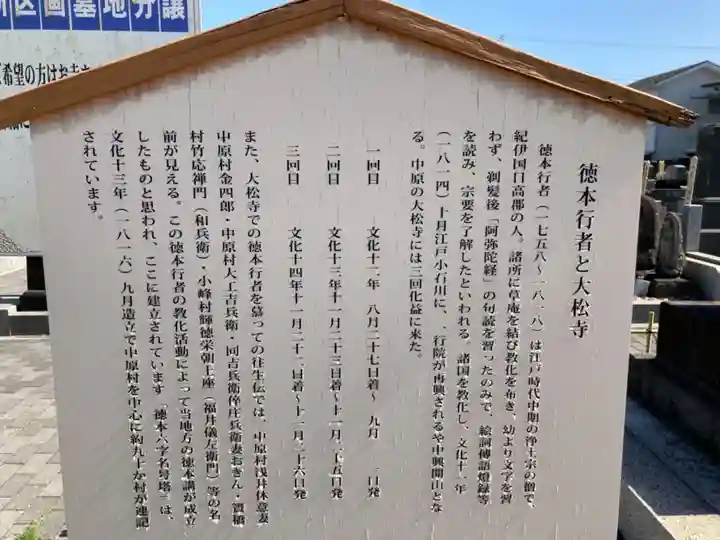 新区画墓地分譲
希望の方はお寺
徳本行者と大松寺
徳本行者（一七五八～一八一八）は江戸時代中期の浄土宗の僧で、
紀伊国日高郡の人。諸所に草庵を結び教化を布き、幼より文字を習
わず、剃髪後「阿弥陀経」の句読を習ったのみで、絵詞傳語燈録等
を読み、宗要を了解したといわれる。諸国を教化し、文化十一年
（一八一四）十月江戸小石川に、一行院が再興されるや中興開山とな
る。中原の大松寺には三回化益に来た。
一回目　文化十二年　八月二十七日着～　九月　二日発
二回目　文化十三年十一月二十三日着～十一月二十五日発
三回目　文化十四年十一月二十一日着～十一月二十六日発
また、大松寺での徳本行者を慕っての往生伝では、中原村浅井休意妻
中原村金四郎・中原村大工吉兵衛・同吉兵衛倅庄兵衛妻おきん・貫橋
村竹応禅門（和兵衛）・小峰村輝徳栄朝上座（福井儀左衛門）等の名
前が見える。この徳本行者の教化活動によって当地方の徳本講が成立
したものと思われ、ここに建立されています「徳本六字名号塔」は、
文化十三年（一八一六）九月造立で中原村を中心に約九十か村が連記
されています。